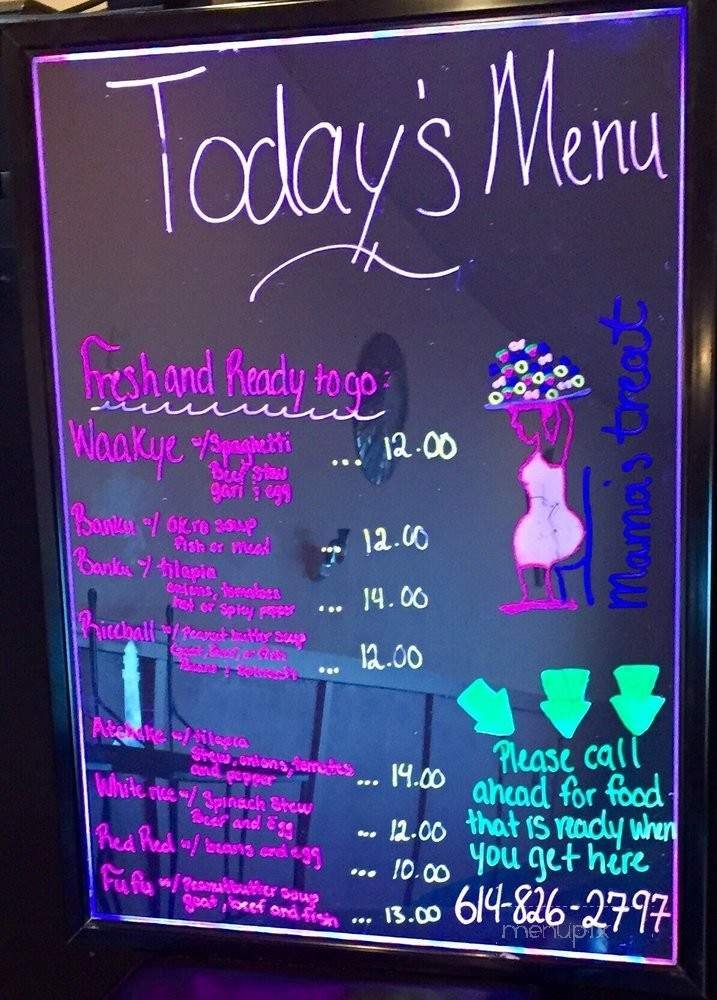 Today's Menu
Fresh and Ready to go:
Waakye w/ Spaghetti
Beef Stew
gari & egg ... 12.00
Banku w/ okro soup
Fish or meat ... 12.00
Banku w/ tilapia
onions, tomatoes
hot or spicy pepper ... 14.00
Riceball w/ Peanut butter soup
Goat, Beef, or Fish ... 12.00
Atcheke w/ tilapia
Stew, onions, tomatoes
and pepper ... 14.00
White rice w/ Spinach Stew
Beef and Egg ... 12.00
Red Red w/ beans and egg ... 10.00
FuFu w/ Peanutbutter soup
goat, beef and fish ... 13.00
Mama's treat
Please call
ahead for food
that is ready when
you get here
614-826-2797
menupix